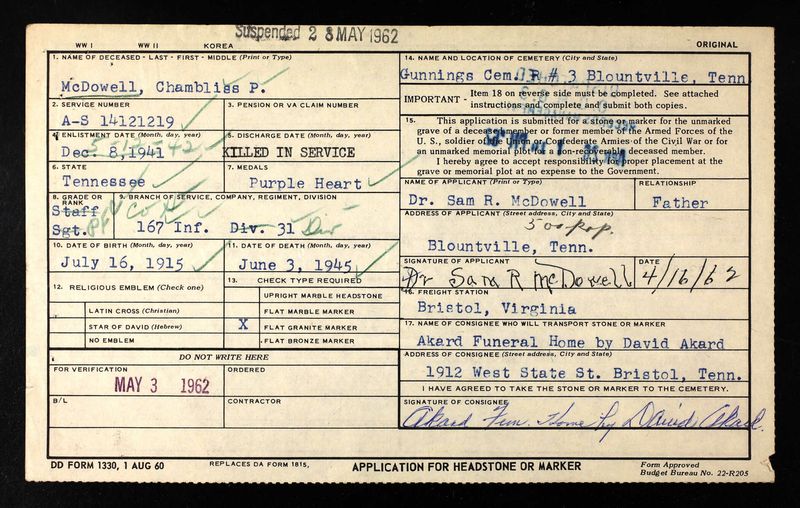 Suspended 28 MAY 1962
WW I WW II KOREA
ORIGINAL
1. NAME OF DECEASED - LAST - FIRST - MIDDLE (Print or Type)
McDowell, Chambliss P.
2. SERVICE NUMBER
A-S 14121219
3. PENSION OR VA CLAIM NUMBER
4. ENLISTMENT DATE (Month, day, year)
Dec. 8, 1941
5. DISCHARGE DATE (Month, day, year)
KILLED IN SERVICE
6. STATE
Tennessee
7. MEDALS
Purple Heart
8. GRADE OR RANK
Staff
Sgt.
Pfc
9. BRANCH OF SERVICE, COMPANY, REGIMENT, DIVISION
Co
167 Inf. Div. 31 Div
10. DATE OF BIRTH (Month, day, year)
July 16, 1915
11. DATE OF DEATH (Month, day, year)
June 3, 1945
12. RELIGIOUS EMBLEM (Check one)
LATIN CROSS (Christian)
STAR OF DAVID (Hebrew)
NO EMBLEM
13. CHECK TYPE REQUIRED
UPRIGHT MARBLE HEADSTONE
FLAT MARBLE MARKER
X FLAT GRANITE MARKER
FLAT BRONZE MARKER
DO NOT WRITE HERE
FOR VERIFICATION
MAY 3 1962
ORDERED
B/L
CONTRACTOR
14. NAME AND LOCATION OF CEMETERY (City and State)
Gunnings Cem. R # 3 Blountville, Tenn
IMPORTANT - Item 18 on reverse side must be completed. See attached
instructions and complete and submit both copies.
15. This application is submitted for a stone or marker for the unmarked
grave of a deceased member or former member of the Armed Forces of the
U. S., soldier of the Union or Confederate Armies of the Civil War or for
an unmarked memorial plot for a non-recoverable deceased member.
I hereby agree to accept responsibility for proper placement at the
grave or memorial plot at no expense to the Government.
NAME OF APPLICANT (Print or Type)
Dr. Sam R. McDowell
RELATIONSHIP
Father
ADDRESS OF APPLICANT (Street address, City and State)
500 pop.
Blountville, Tenn.
SIGNATURE OF APPLICANT
Dr Sam R McDowell
DATE
4/16/62
16. FREIGHT STATION
Bristol, Virginia
17. NAME OF CONSIGNEE WHO WILL TRANSPORT STONE OR MARKER
Akard Funeral Home by David Akard
ADDRESS OF CONSIGNEE (Street address, City and State)
1912 West State St. Bristol, Tenn.
I HAVE AGREED TO TAKE THE STONE OR MARKER TO THE CEMETERY.
SIGNATURE OF CONSIGNEE
Akard Fun. Home by David Akard.
DD FORM 1330, 1 AUG 60
REPLACES DA FORM 1815,
APPLICATION FOR HEADSTONE OR MARKER
Form Approved
Budget Bureau No. 22-R205